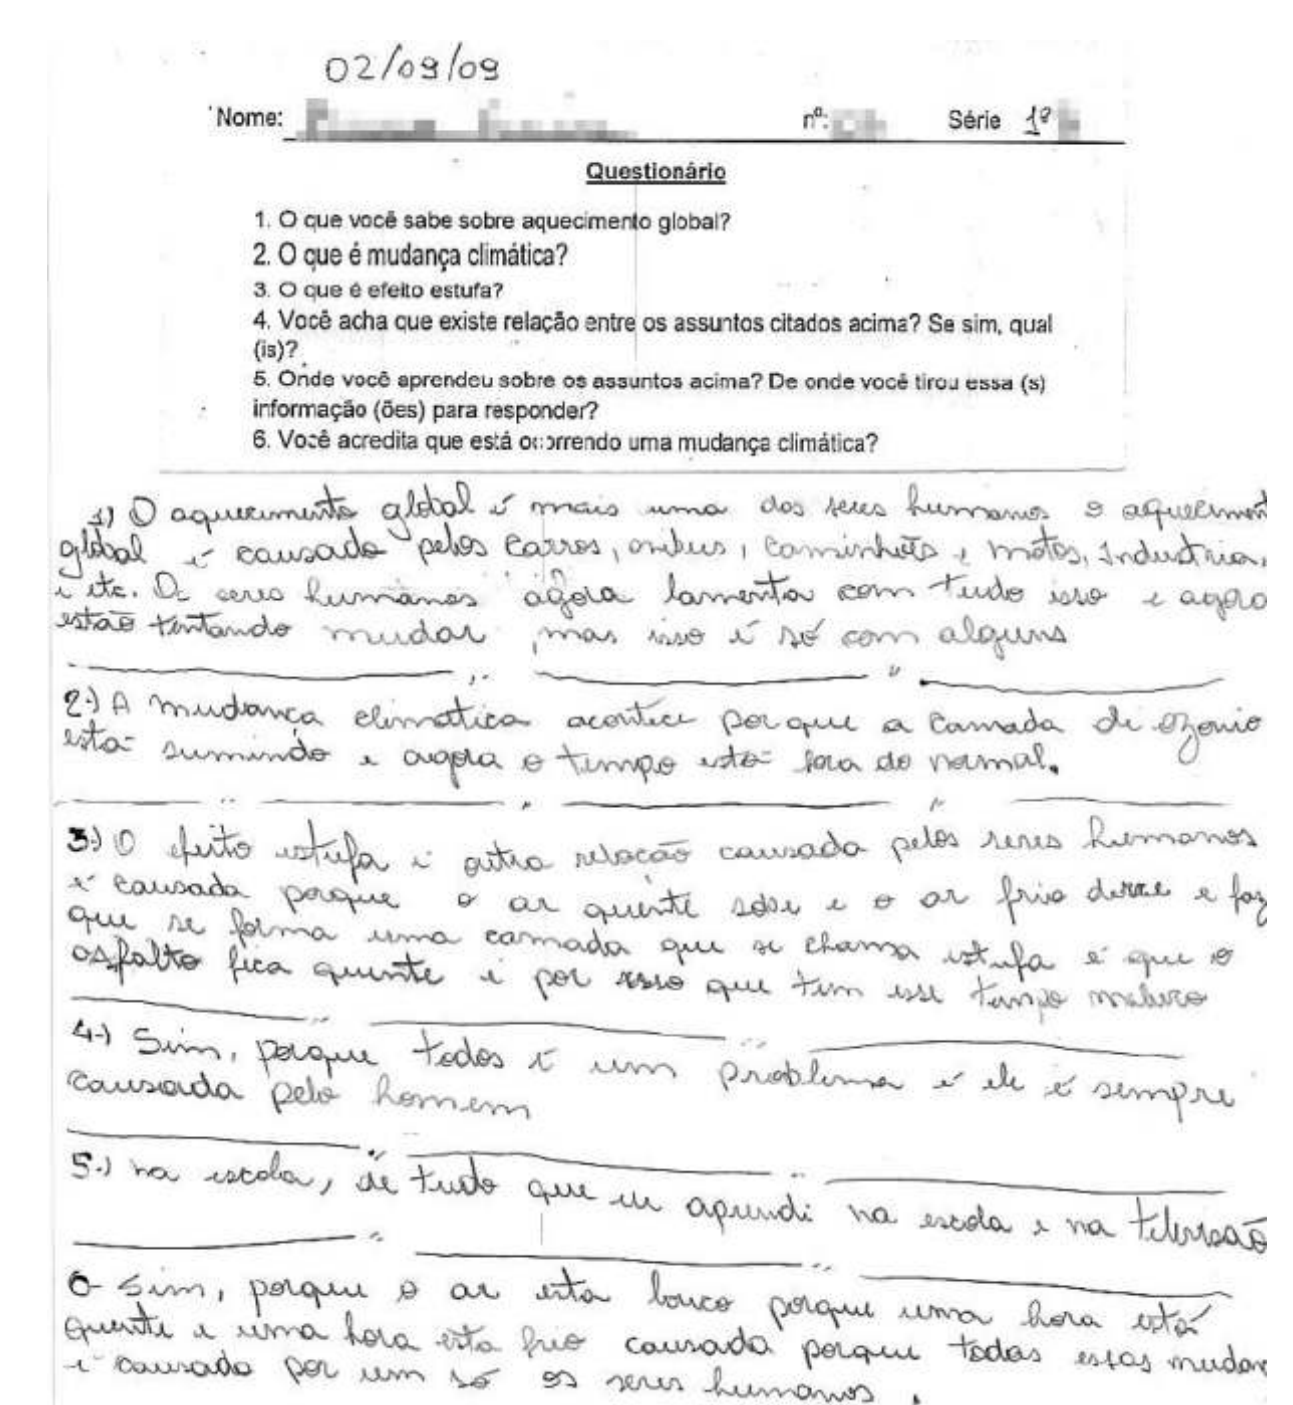 02/09/09
Nome:
nº: Série 1º
Questionário
1. O que você sabe sobre aquecimento global?
2. O que é mudança climática?
3. O que é efeito estufa?
4. Você acha que existe relação entre os assuntos citados acima? Se sim, qual
(is)?
5. Onde você aprendeu sobre os assuntos acima? De onde você tirou essa (s)
informação (ões) para responder?
6. Você acredita que está ocorrendo uma mudança climática?
1) O aquecimento global é mais uma dos seres humanos o aqueciment
global é causado pelos carros, onibus, caminhões, motos, Industrias,
e etc. Os seres humanos agora lamenta com tudo isso e agora
estão tentando mudar, mas isso é só com alguns
2-) A mudança climatica acontece porque a camada de ozonio
está sumindo e agora o tempo está fora do normal.
3-) O efeito estufa é outra relação causada pelos seres humanos
é causada porque o ar quente sobe e o ar frio desce e faz
que se forma uma camada que se chama estufa é que o
asfalto fica quente é por isso que tem esse tempo
4-) Sim, porque todos é um problema é ele é sempre
causada pelo homem
5-) na escola, de tudo que eu aprendi na escola e na
6- Sim, porque o ar esta louco porque uma hora está
quente e uma hora esta frio causada porque todas essas mudan
é causado por um só os seres humanos.